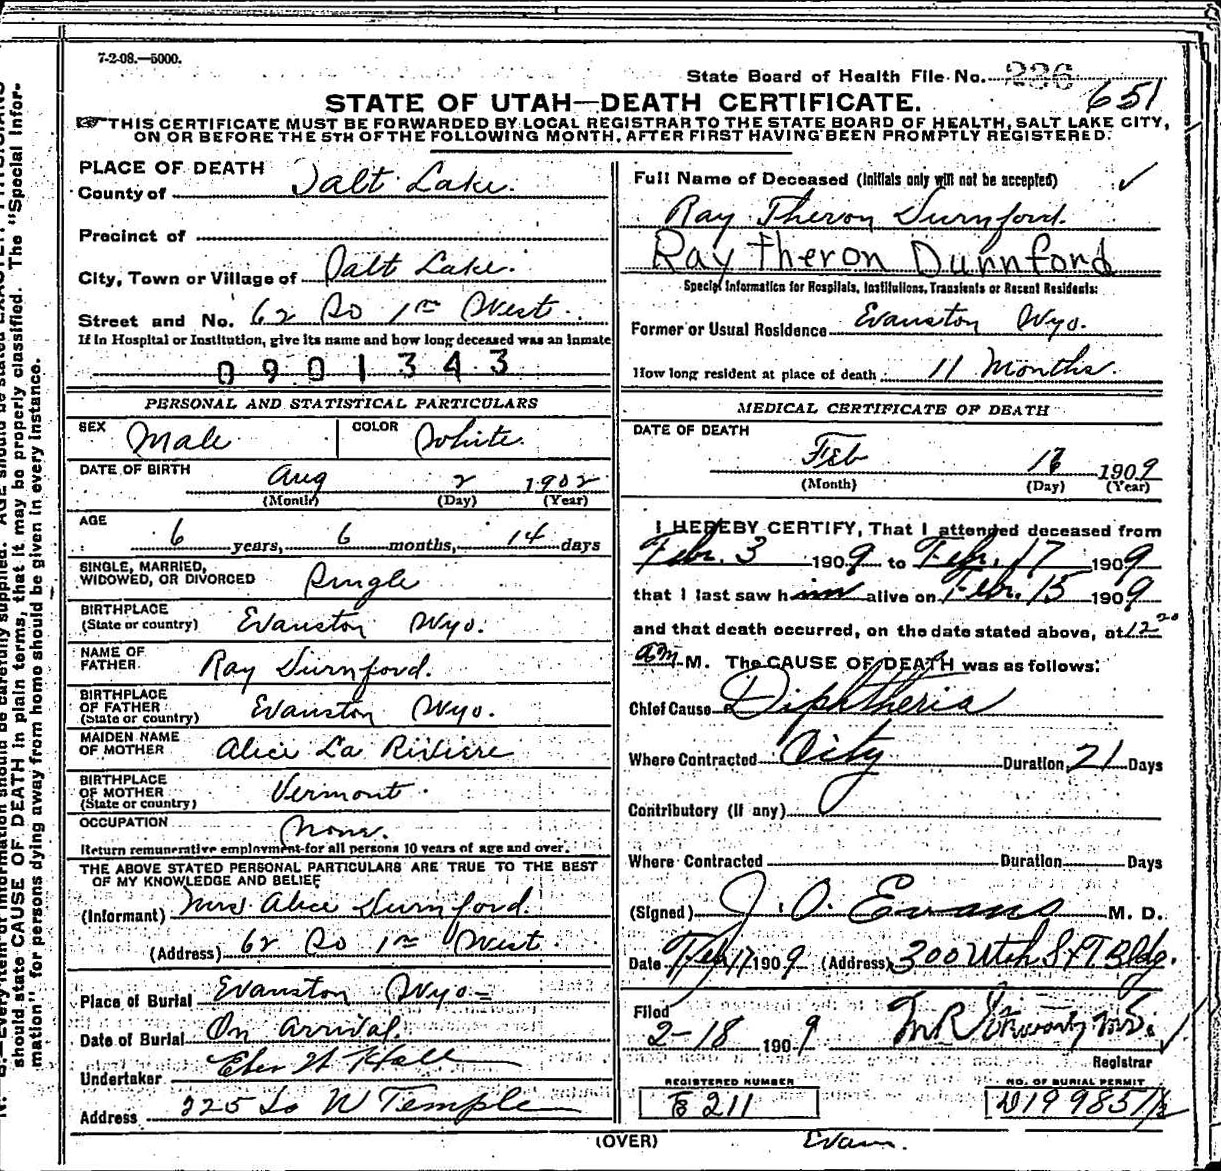 7-2-08.—5000.
State Board of Health File No. 236
651
STATE OF UTAH—DEATH CERTIFICATE.
THIS CERTIFICATE MUST BE FORWARDED BY LOCAL REGISTRAR TO THE STATE BOARD OF HEALTH, SALT LAKE CITY,
ON OR BEFORE THE 5TH OF THE FOLLOWING MONTH, AFTER FIRST HAVING BEEN PROMPTLY REGISTERED.
PLACE OF DEATH
County of Salt Lake.
Precinct of
City, Town or Village of Salt Lake.
Street and No. 62 So 1st West.
If in Hospital or Institution, give its name and how long deceased was an inmate
0901343
PERSONAL AND STATISTICAL PARTICULARS
SEX Male COLOR White
DATE OF BIRTH Aug 2 1902
(Month) (Day) (Year)
AGE
6 years, 6 months, 14 days
SINGLE, MARRIED,
WIDOWED, OR DIVORCED Single
BIRTHPLACE
(State or country) Evanston Wyo.
NAME OF
FATHER Ray Durnford.
BIRTHPLACE
OF FATHER
(State or country) Evanston Wyo.
MAIDEN NAME
OF MOTHER Alice La Riviere
BIRTHPLACE
OF MOTHER
(State or country) Vermont.
OCCUPATION None.
Return remunerative employment for all persons 10 years of age and over.
THE ABOVE STATED PERSONAL PARTICULARS ARE TRUE TO THE BEST
OF MY KNOWLEDGE AND BELIEF
(Informant) Mrs Alice Durnford.
(Address) 62 So 1st West.
Place of Burial Evanston Wyo
Date of Burial On arrival.
Undertaker Eber W Hall
Address 225 So W Temple
Full Name of Deceased (Initials only will not be accepted)
Ray Theron Durnford.
Ray Theron Dunnford
Special Information for Hospitals, Institutions, Transients or Recent Residents:
Former or Usual Residence Evanston Wyo.
How long resident at place of death: 11 Months.
MEDICAL CERTIFICATE OF DEATH
DATE OF DEATH
Feb 16 1909
(Month) (Day) (Year)
I HEREBY CERTIFY, That I attended deceased from
Febr. 3 1909 to Febr. 17 1909
that I last saw him alive on Febr. 15 1909
and that death occurred, on the date stated above, at 12 20
am M. The CAUSE OF DEATH was as follows:
Chief Cause Diphtheria
Where Contracted City Duration 21 Days
Contributory (If any)
Where Contracted Duration Days
(Signed) J. O. Evans M. D.
Date Feb 17 1909 (Address) 300 Utah S & T Bldg.
Filed
2-18 1909
Registrar
REGISTERED NUMBER
E 211
NO. OF BURIAL PERMIT
(OVER)
Evan.
should state CAUSE OF DEATH in plain terms, that it may be properly classified. The "Special Infor-
mation" for persons dying away from home should be given in every instance.